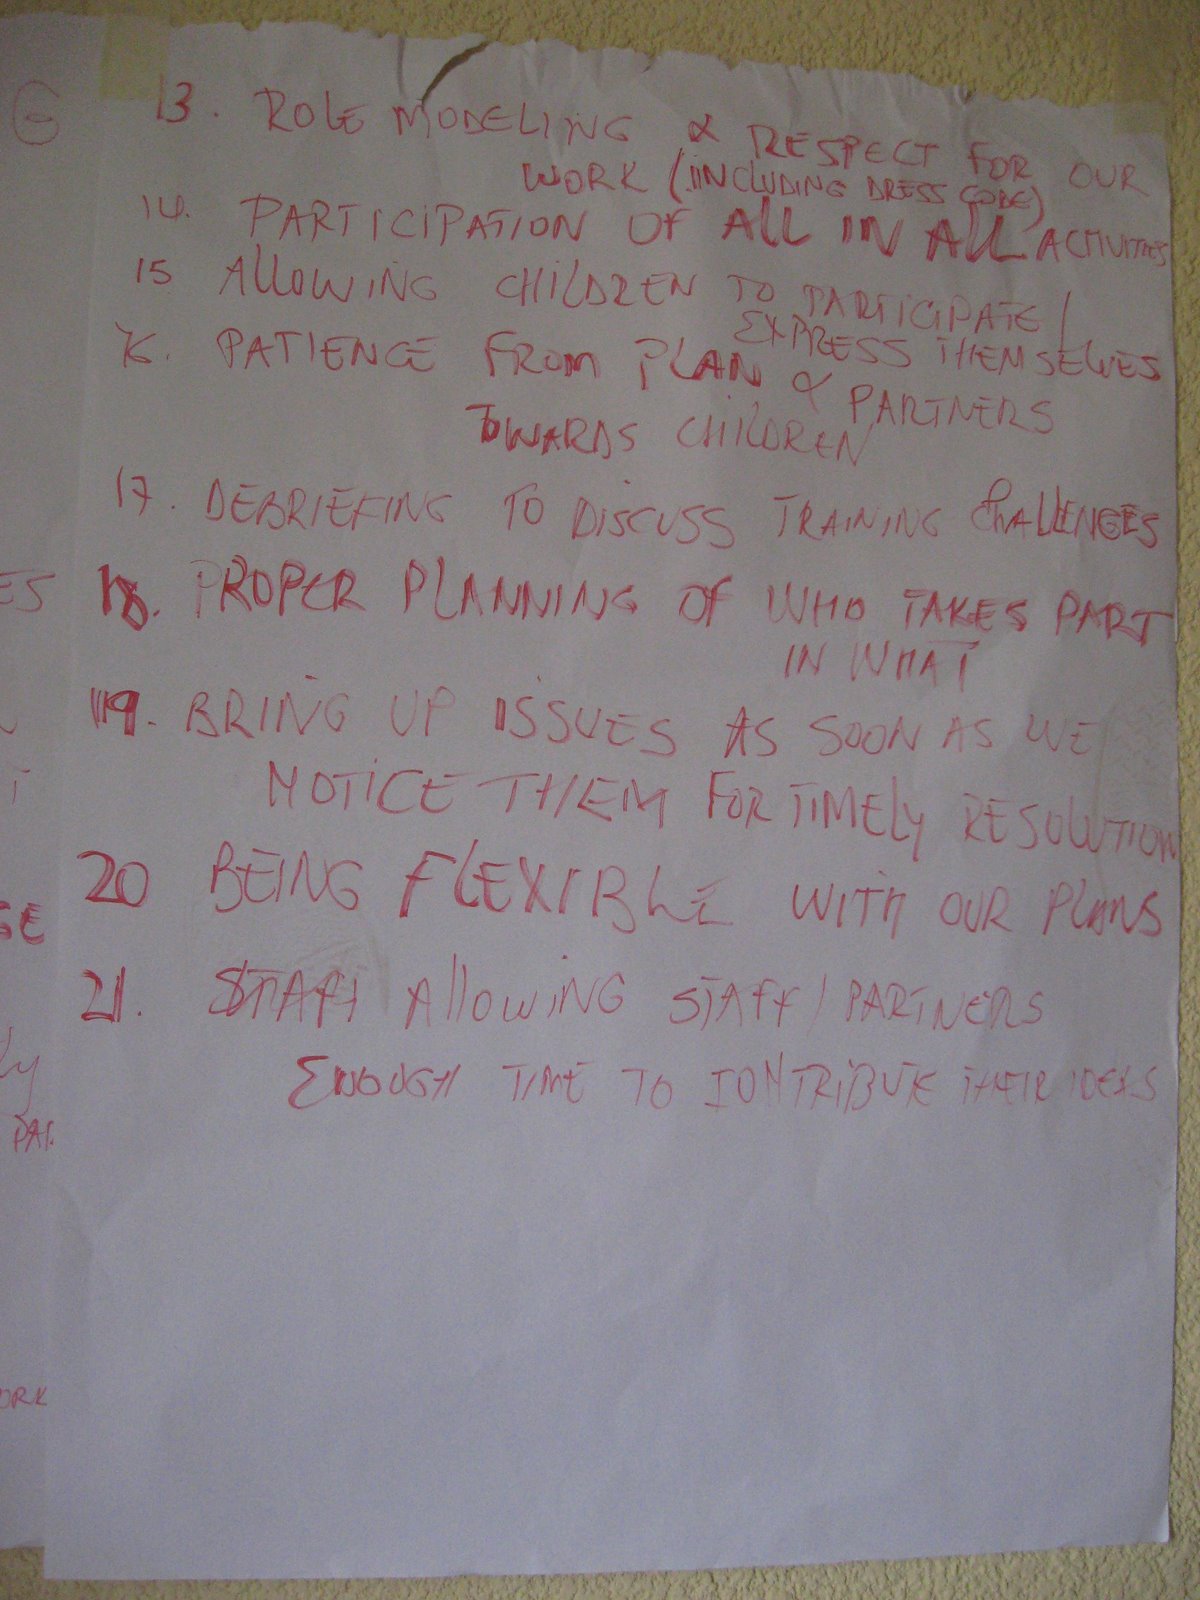 G
13. ROLE MODELING & RESPECT FOR OUR
WORK (INCLUDING DRESS CODE)
14. PARTICIPATION OF ALL IN ALL ACTIVITIES
15 ALLOWING CHILDREN TO PARTICIPATE/
EXPRESS THEMSELVES
16. PATIENCE FROM PLAN & PARTNERS
TOWARDS CHILDREN
17. DEBRIEFING TO DISCUSS TRAINING CHALLENGES
18. PROPER PLANNING OF WHO TAKES PART
IN WHAT
19. BRING UP ISSUES AS SOON AS WE
NOTICE THEM FOR TIMELY RESOLUTION
20 BEING FLEXIBLE WITH OUR PLANS
21. ALLOWING STAFF/PARTNERS
ENOUGH TIME TO CONTRIBUTE THEIR IDEAS